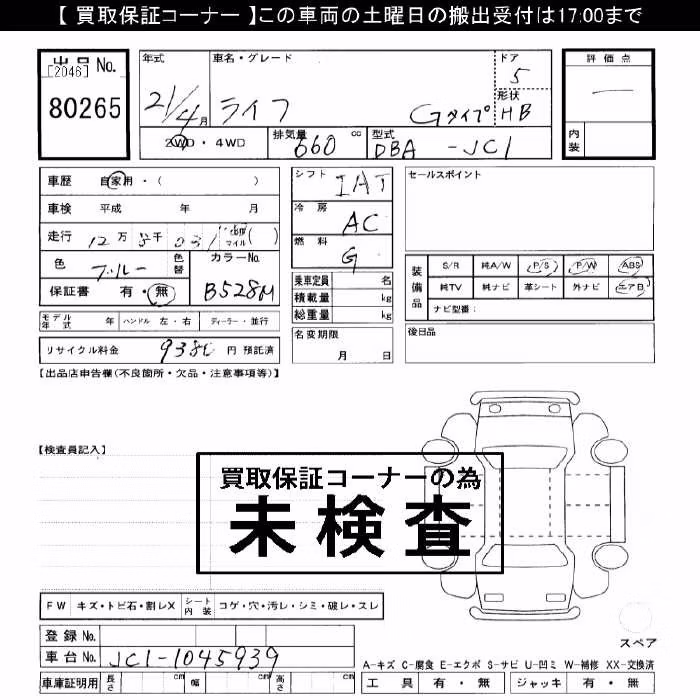 【 買取保証コーナー 】この車両の土曜日の搬出受付は17:00まで
出品 No.
[2046]
80265
年式
21/4月
車名・グレード
ライフ
Gタイプ
ドア
5
形状
HB
評価点
一
内装
2WD・4WD
排気量 660 cc
型式 DBA -JC1
車歴 自家用・( )
車検 平成 年 月
走行 12万 千 031 km マイル ( )
色 ブルー
色替
カラーNo. B528M
保証書 有・無
モデル年式 年 ハンドル 左・右 ディーラー・並行
リサイクル料金 9380 円 預託済
シフト IAT
冷房 AC
燃料 G
乗車定員 名
積載量 kg
総重量 kg
名変期限
月 日
セールスポイント
装備品
S/R 純A/W P/S P/W ABS
純TV 純ナビ 革シート 外ナビ エアB
ナビ型番:
後日品
【出品店申告欄(不良箇所・欠品・注意事項等)】
【検査員記入】
買取保証コーナーの為
未検査
FW キズ・トビ石・割レX シート内装 コゲ・穴・汚レ・シミ・破レ・スレ
登録 No.
車台 No. JC1-1045939
車庫証明用 長さ cm 幅 cm 高さ cm
スペア
A-キズ C-腐食 E-エクボ S-サビ U-凹ミ W-補修 XX-交換済
工具 有・無 ジャッキ 有・無